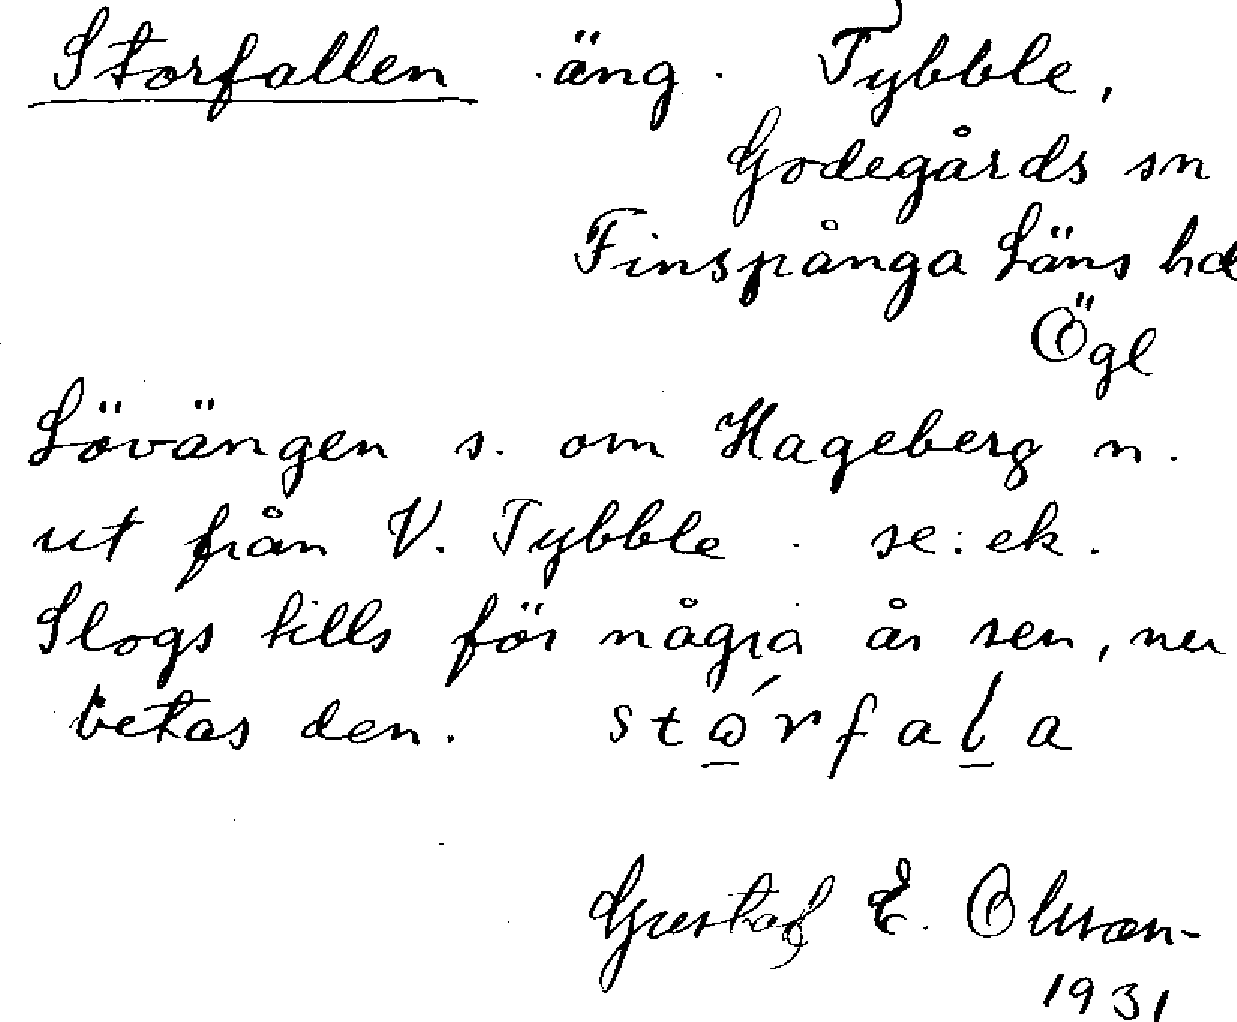 Storfallen äng. Tybble,
Godegårds sn
Finspånga Läns hd
Ögl
Lövängen s. om Hageberg n.
ut från V. Tybble. se: ek.
Slogs tills för några år sen, nu
betas den. stώrfala
Gustaf E. Olsson
1931